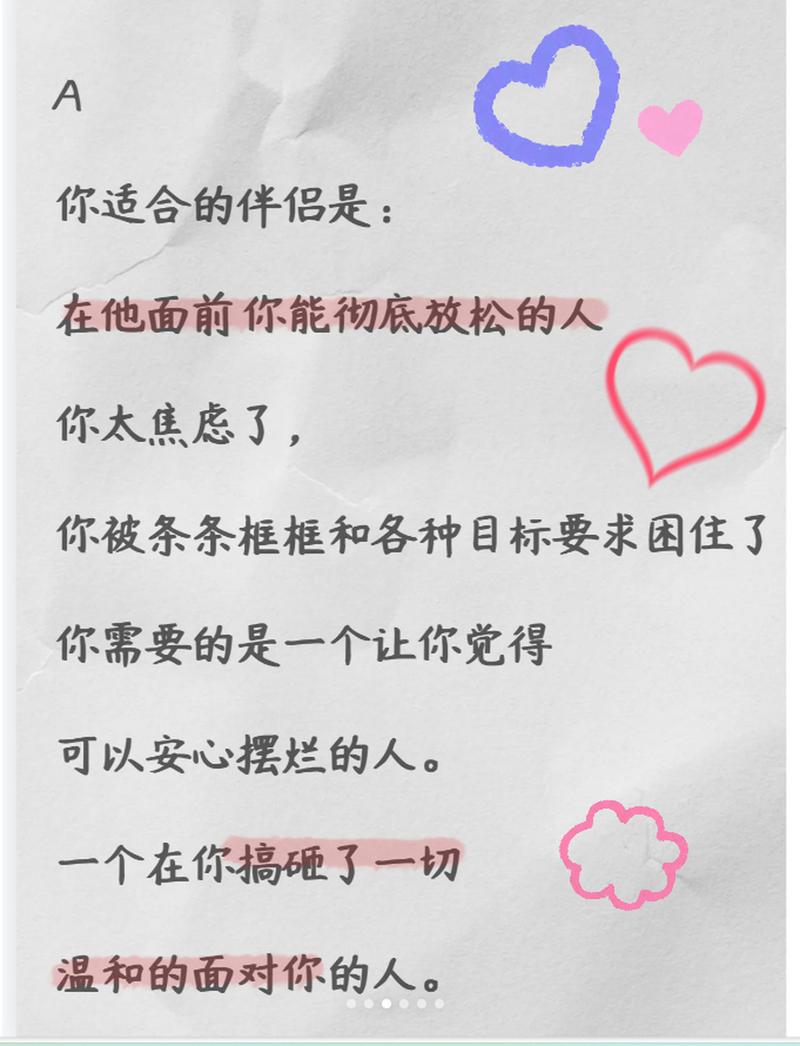 A
你适合的伴侣是：
在他面前你能彻底放松的人
你太焦虑了，
你被条条框框和各种目标要求困住了
你需要的是一个让你觉得
可以安心摆烂的人。
一个在你搞砸了一切
温和的面对你的人。